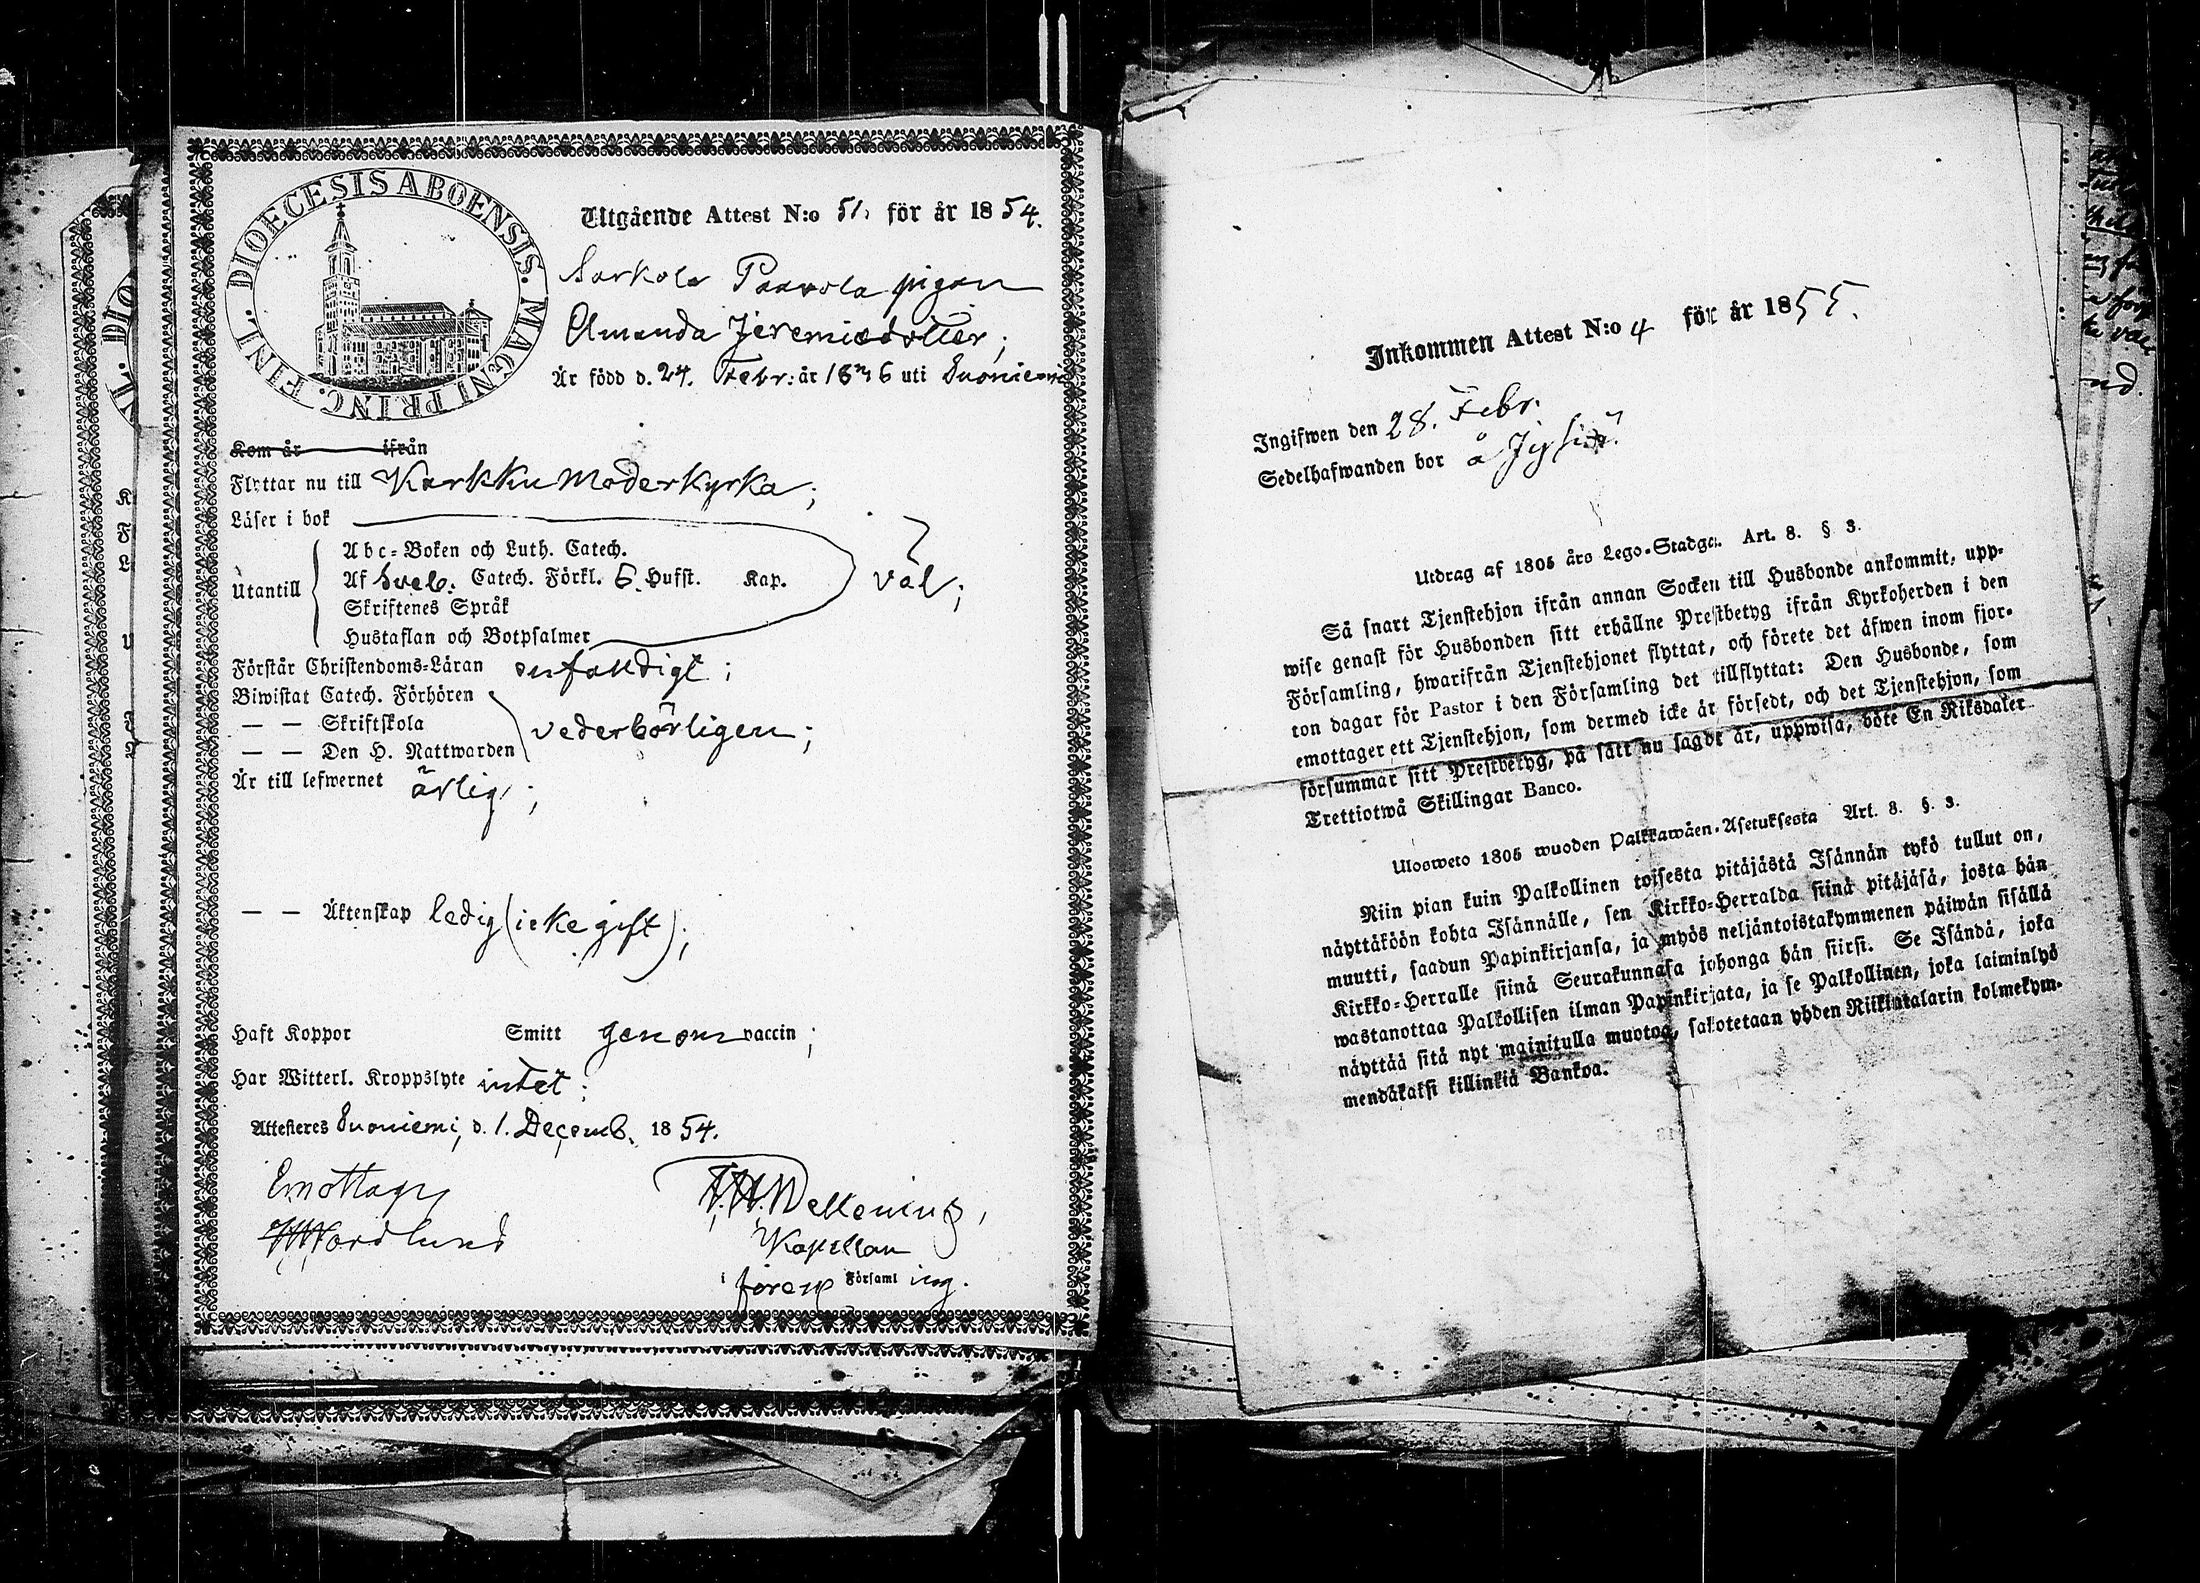 DIOECESIS ABOENSIS. MAGNI PRINC. FINL.
Utgående Attest N:o 51, för år 1854.
Sarkola Paavola pigan
Amanda Jeremiædotter;
Är född d. 24. Febr: år 1836 uti Suoniemi
Kom år ifrån
Flyttar nu till Karkku Moderkyrka;
Läser i bok
Utantill
Abc-Boken och Luth. Catech.
Af Sveb. Catech. Förkl. 6. Hufst. Kap.
väl;
Skriftenes Språk
Hustaflan och Botpsalmer
Förstår Christendoms-Läran enfaldigt;
Biwistat Catech. Förhören
— — Skriftskola
vederbörligen;
— — Den H. Nattwarden
Är till lefwernet ärlig;
— — Äktenskap ledig (icke gift);
Haft Koppor Smitt genom vaccin;
Har Witterl. Kroppslyte intet;
Attesteras Suoniemi, d. 1. Decemb. 1854.
Emottagen
Nordlund
Kapellan
i fören. Församl ing.
Inkommen Attest N:o 4 för år 1855.
Ingifwen den 28. Febr.
Sedelhafwanden bor å
Utdrag af 1805 års Lego-Stadga. Art. 8. § 3.
Så snart Tjenstehjon ifrån annan Socken till Husbonde ankommit, upp-
wise genast för Husbonden sitt erhållne Prestbetyg ifrån Kyrkoherden i den
Församling, hwarifrån Tjenstehjonet flyttat, och förete det äfwen inom fjor-
ton dagar för Pastor i den Församling det tillflyttat: Den Husbonde, som
emottager ett Tjenstehjon, som dermed icke är försedt, och det Tjenstehjon, som
försummar sitt Prestbetyg, på sätt nu sagdt är, uppwisa, böte En Riksdaler
Trettiotwå Skillingar Banco.
Ulosweto 1805 wuoden Palkkawäen-Asetuksesta Art. 8. §. 3.
Niin pian kuin Palkollinen toisesta pitäjästä Isännän tykö tullut on,
näyttäköön kohta Isännälle, sen Kirkko-Herralda siinä pitäjäsä, josta hän
muutti, saadun Papinkirjansa, ja myös neljäntoistakymmenen päiwän sisällä
Kirkko-Herralle siinä Seurakunnasa johonga hän siirsi. Se Isändä, joka
wastanottaa Palkollisen ilman Papinkirjata, ja se Palkollinen, joka laiminlyö
näyttää sitä nyt mainitulla muotoa, sakotetaan yhden Riikintalarin kolmekym-
mendäkaksi killinkiä Bankoa.